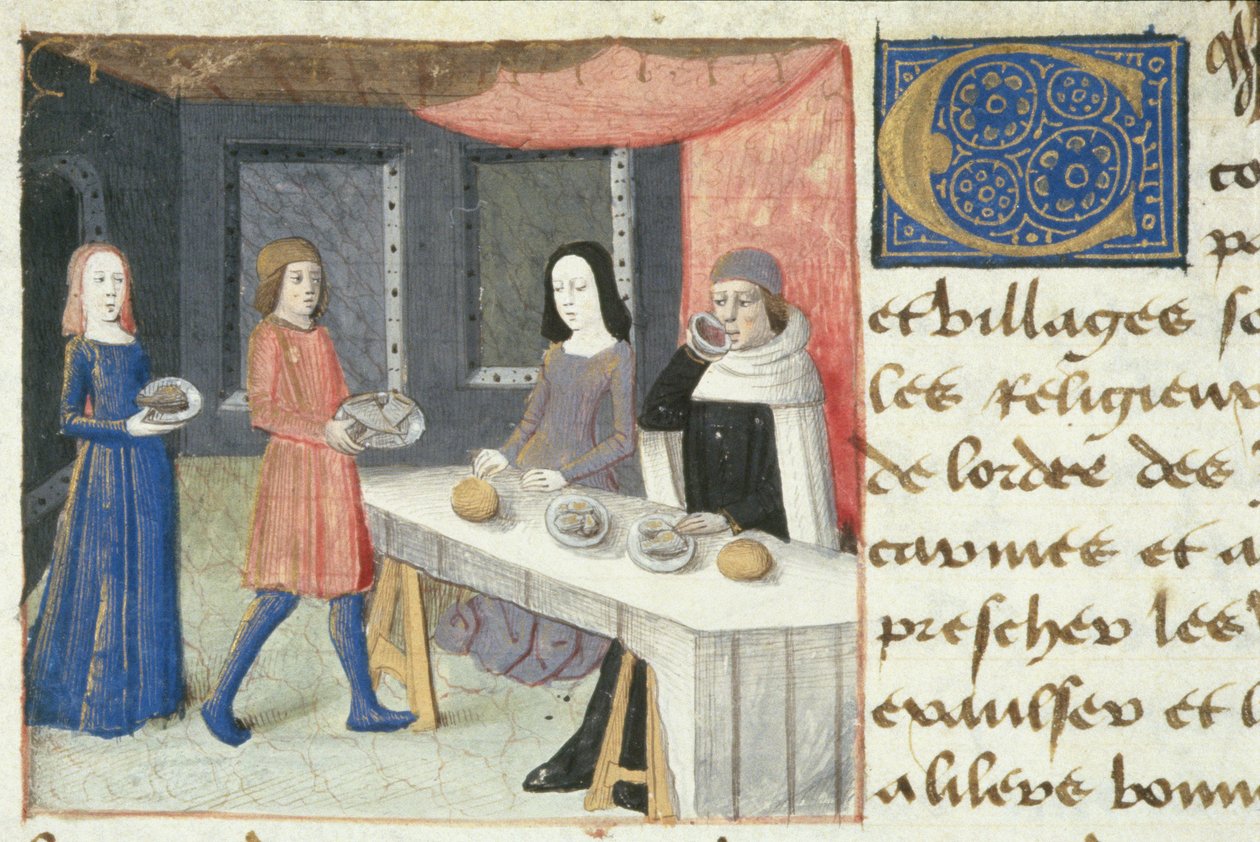 C
co
et villages se
les religieux
de lordre des
carmes et a
prescher les
exaulser et
a lileve bonn